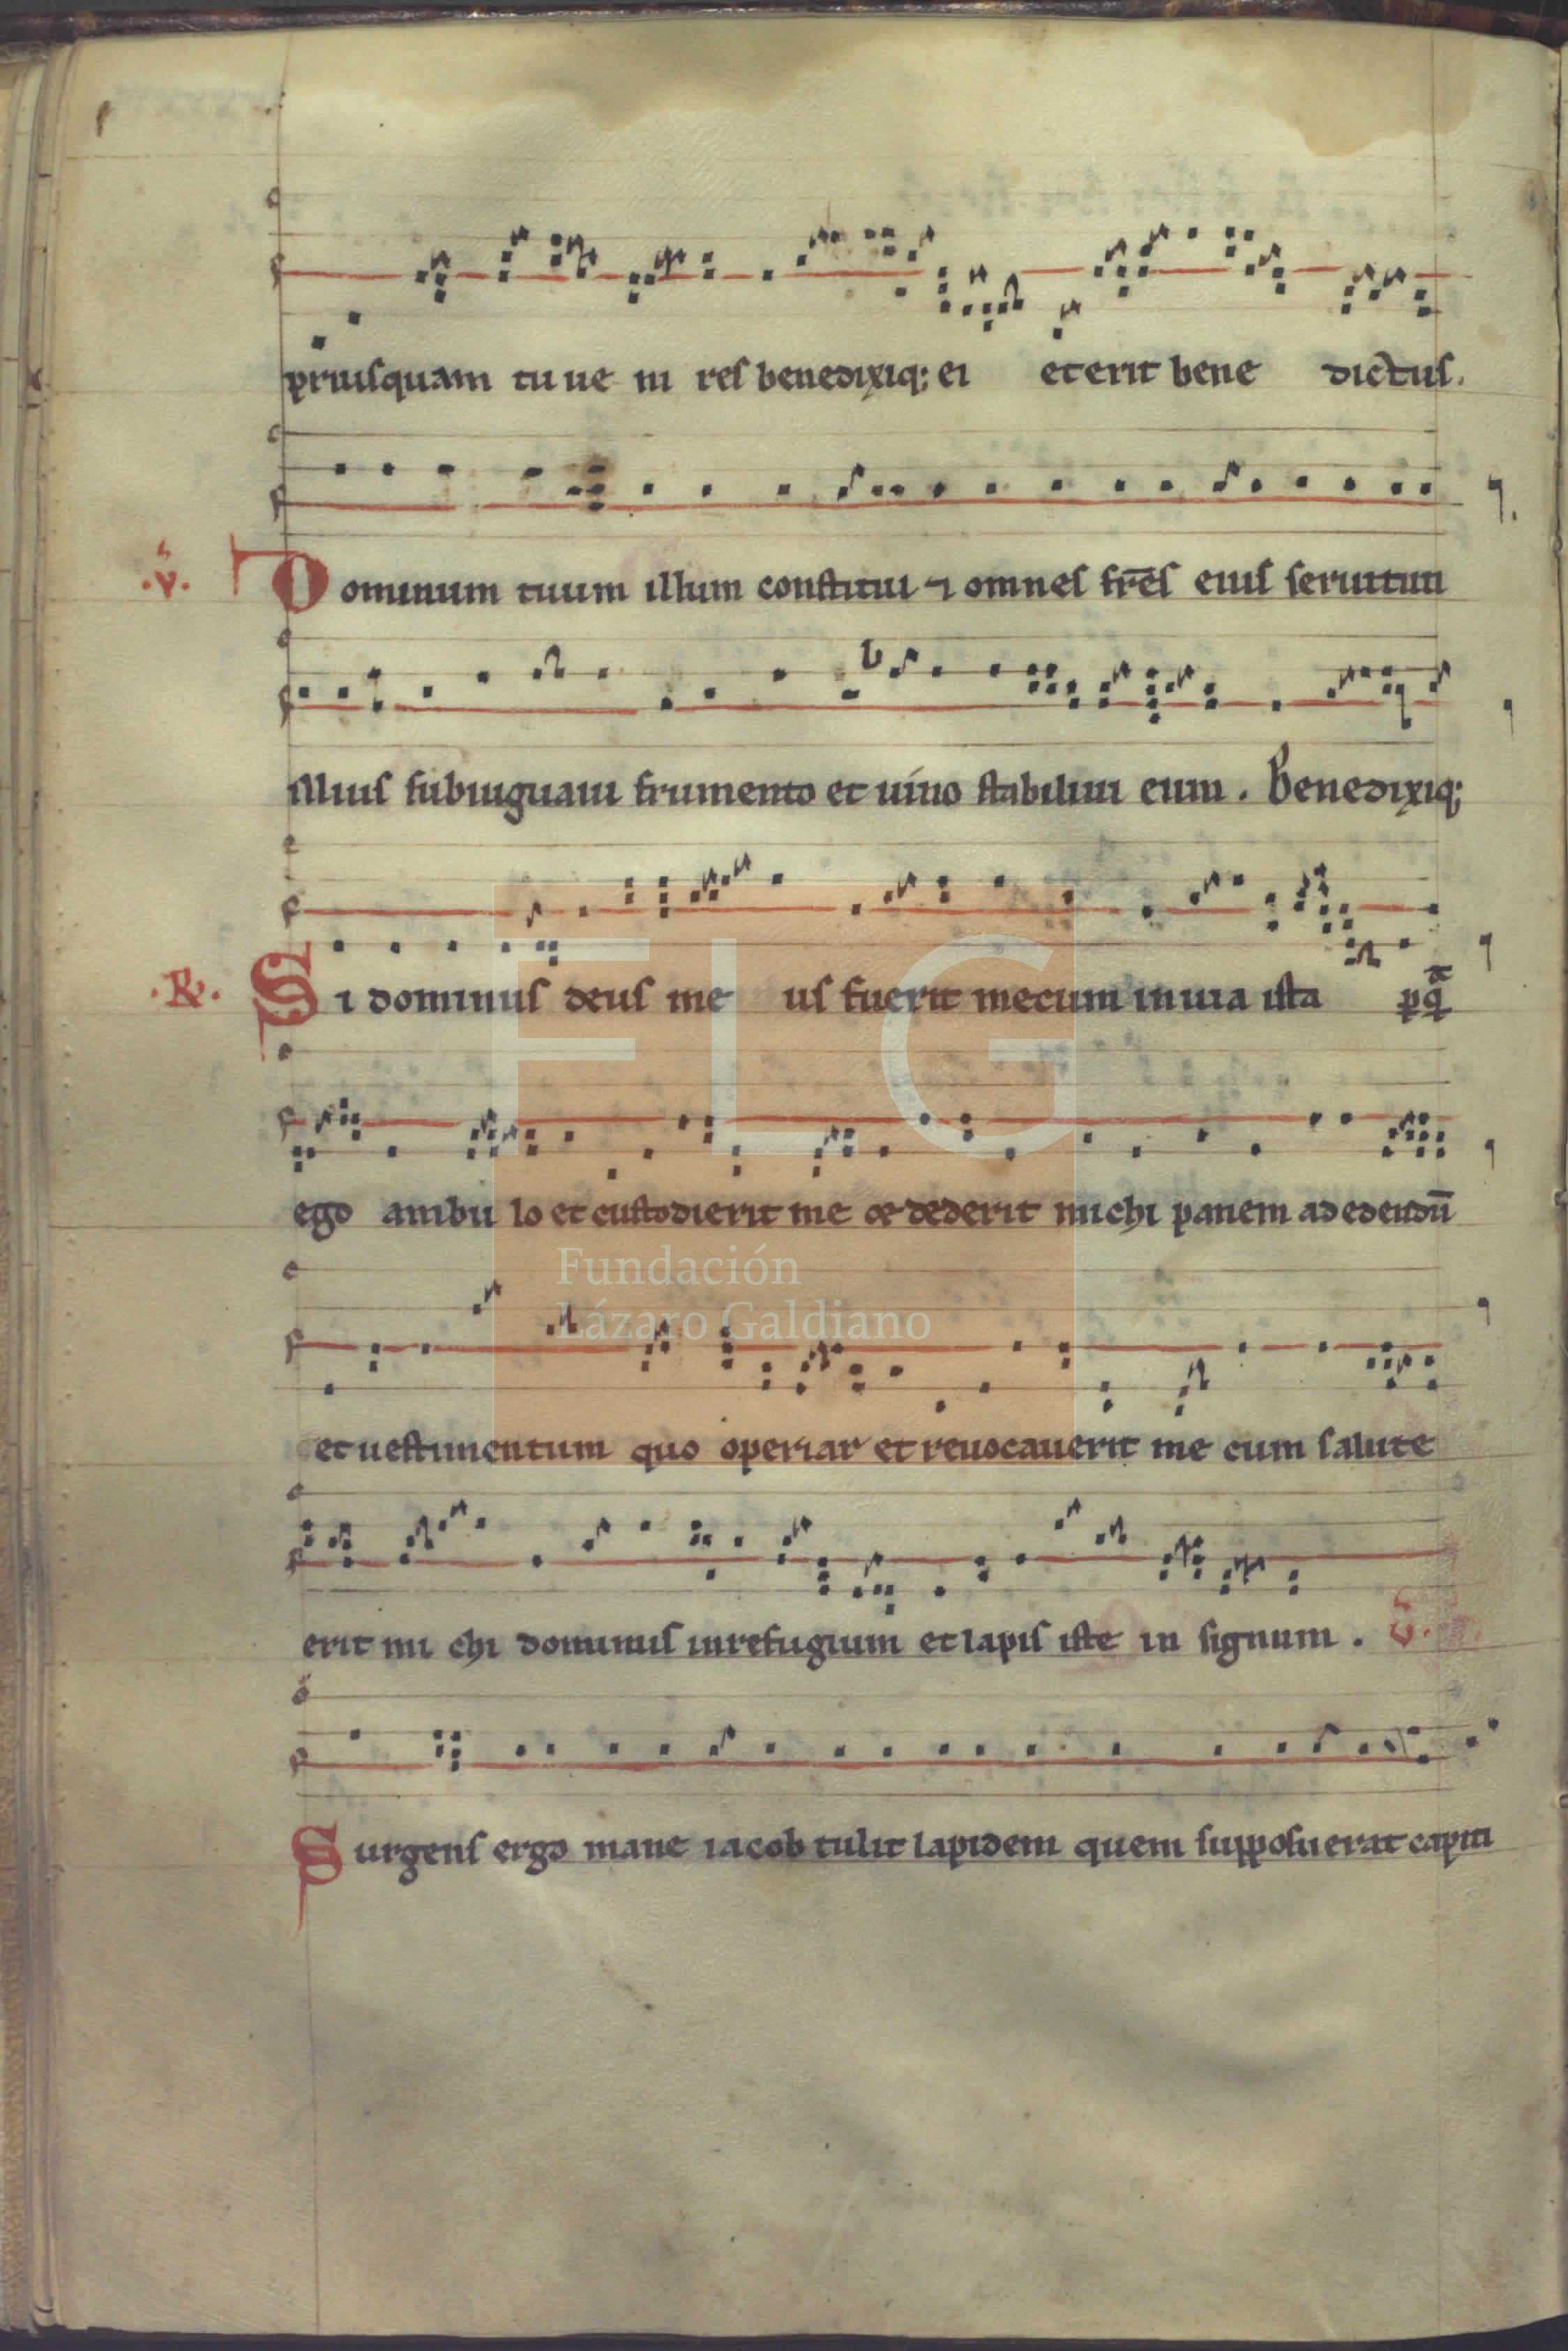 priusquam tu ue ni res benedixiq; ei et erit bene dictus.
.v. Dominum tuum illum constitui ⁊ omnes fr̄es eius seruituti
illius subiugaui frumento et uino stabiliui eum . Benedixiq;
.R. Si dominus deus me us fuerit mecum in uia ista
ego ambu lo et custodierit me & dederit michi panem ad edendū
et uestimentum quo operiar et reuocauerit me cum salute
erit mi chi dominus in refugium et lapis iste in signum . v.
Surgens ergo mane iacob tulit lapidem quem supposuerat capiti
FLG
Fundación
Lázaro Galdiano